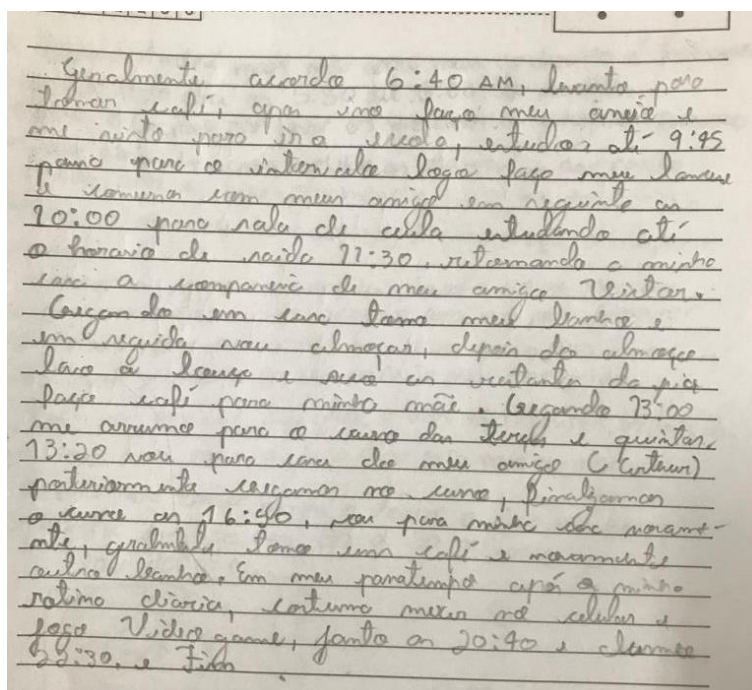 Geralmente acordo 6:40 AM, levanto para
tomar café, apos isso faço meu anseio e
me visto para ir a escola, estudo até 9:45
pauso para o intervalo logo faço meu lanche
e converso com meus amigo em seguinte as
10:00 para sala de aula estudando até
o horario de saida 11:30, retornando a minha
casa a companhia de meu amigo Victor.
Chegando em casa tomo meu banho e
em seguida vou almoçar, depois do almoço
lavo a louça e seco os restantes da pia
faço café para minha mãe. Cegando 13:00
me arrumo para o curso das terças e quintas,
13:20 vou para casa do meu amigo (Artur)
posteriormente cegamos no curso, finalizamos
o curso as 16:40, vou para minha casa novame-
nte, geralmente tomo um café e novamente
outro banho. Em meu passatempo após a minha
rotina diaria, costumo mexer no celular e
jogo Video game, janto as 20:40 e durmo
22:30, e Fim